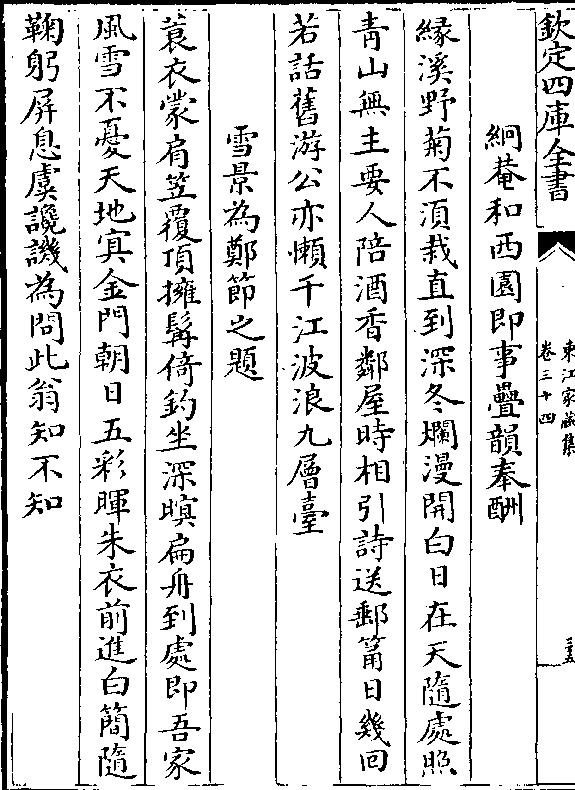 欽定四庫全書
東江家藏集
卷三十四
三五
絅菴和西園即事疊韻奉酬
緣溪野菊不湏栽直到深冬爛漫開白日在天隨處照
青山無主要人陪酒香鄰屋時相引詩送郵筩日幾回
若話舊游公亦懶千江波浪九層臺
雪景為鄭節之題
蓑衣蒙肩笠覆頂擁髯倚釣坐深暝扁舟到處即吾家
風雪不憂天地寘金門朝日五彩暉朱衣前進白簡隨
鞠躬屏息虞讒譏為問此翁知不知